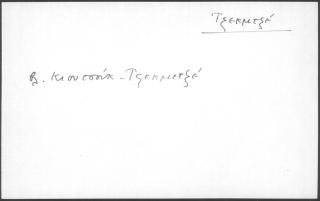 Τσεκμετζέ
βλ. Κιουτσούκ-Τσεκμετζέ